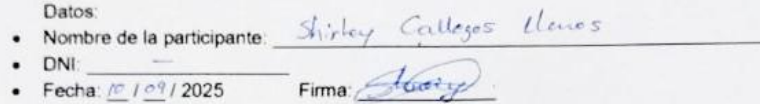 Datos:
• Nombre de la participante: Shirley Callegos Llenos
• DNI: —
• Fecha: 10 / 09 / 2025 Firma: